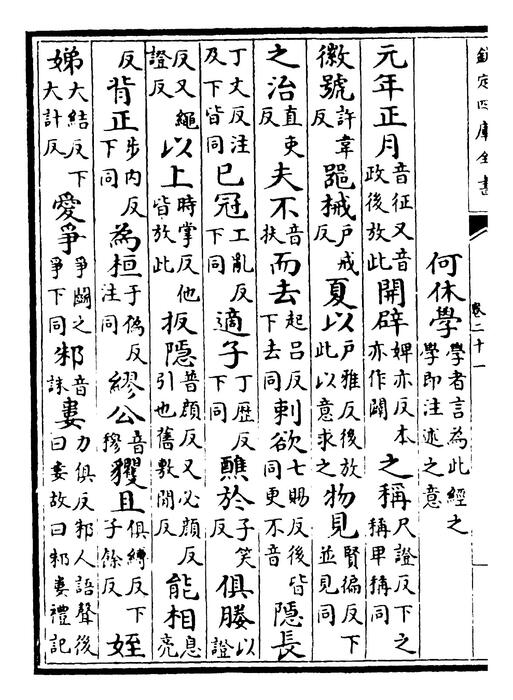 欽定四庫全書
卷二十一
何休學學者言為此經之學即注述之意
元年正月音征又音政後放此開辟婢亦反本亦作闢之稱尺證反下之稱甲稱同
徽號許韋反噐械戶戒反夏以戶雅反後放此以意求之物見賢徧反下並見同
之治直吏反夫不音扶而去起呂反下去同刺欲七賜反後皆同更不音隱長
丁丈反注及下皆同已冠工亂反下同適子丁歷反下同醮於子笑反俱媵以證
反又繩證反以上時掌反他皆放此扳隱普顔反又必顔反引也舊敷閒反能相息亮
反背正步内反下同為桓于偽反注同繆公音穆玃且俱縛反下子餘反姪
娣大結反下大計反愛爭爭鬬之爭下同邾音誅婁力俱反邾人語聲後曰婁故曰邾婁禮記